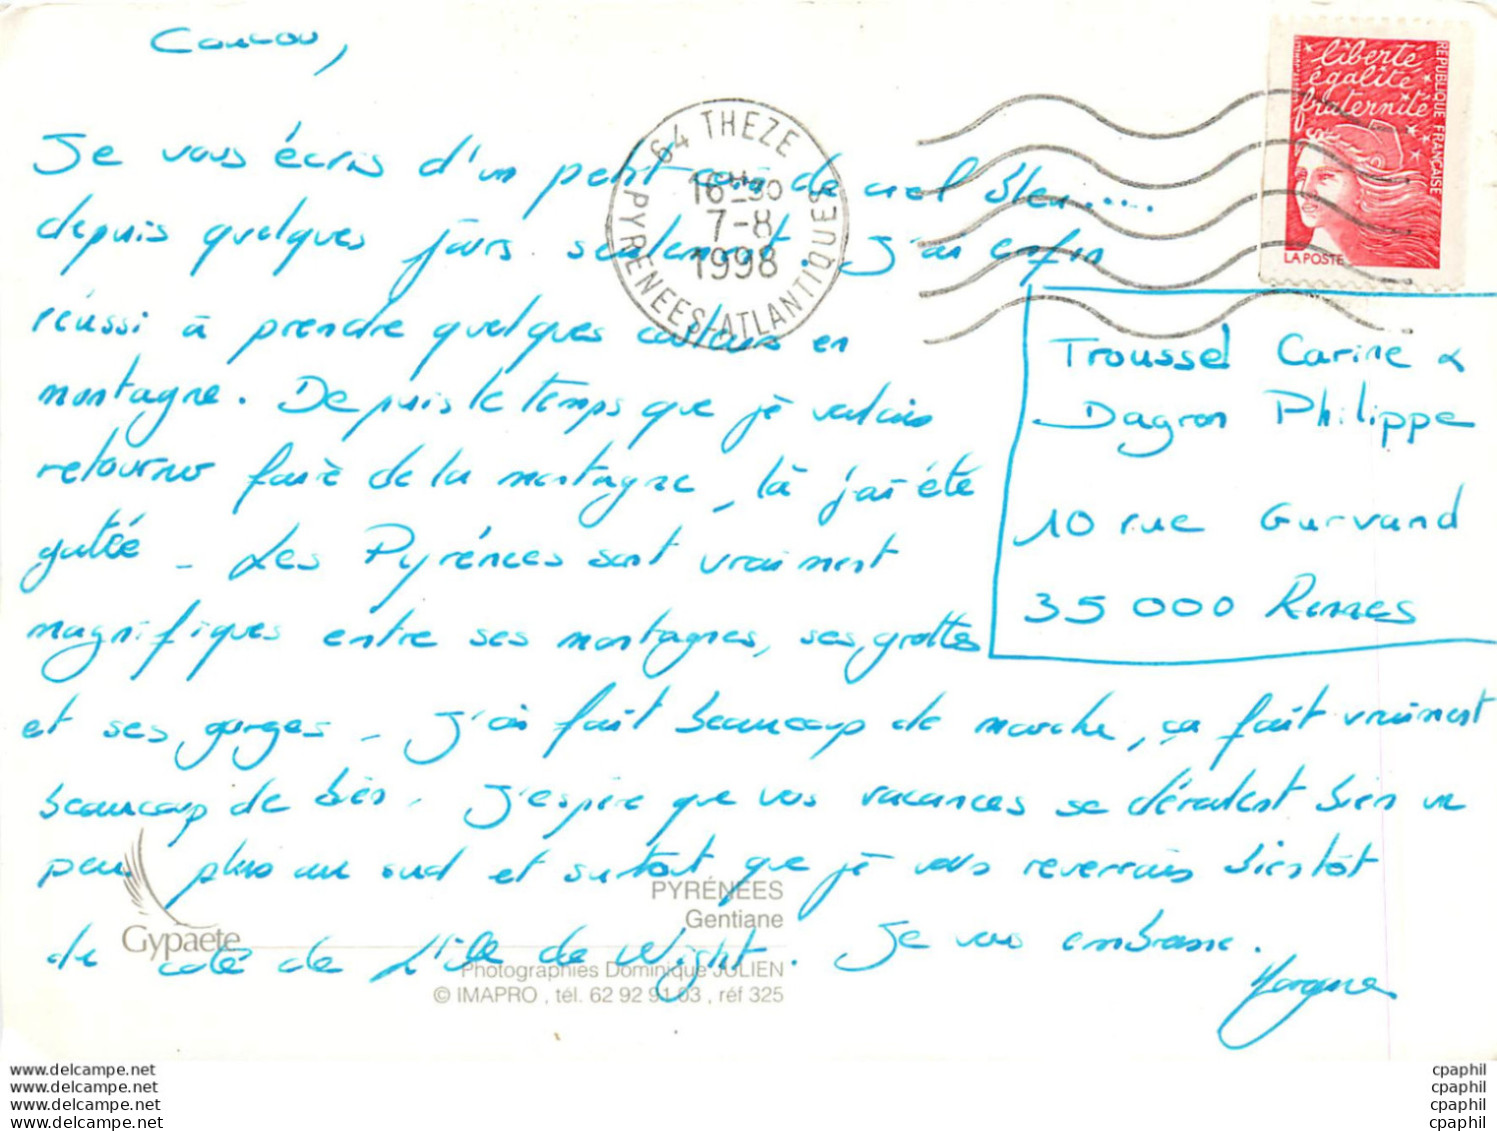 Coucou,
Je vous écris d'un petit coin de ciel bleu....
depuis quelques jours seulement. J'ai enfin
réussi à prendre quelques couleurs en
montagne. Depuis le temps que je voulais
retourner faire de la montagne, là j'ai été
gatée - Les Pyrénées sont vraiment
magnifiques entre ses montagnes, ses grottes
et ses gorges - J'ai fait beaucoup de marche, ça fait vraiment
beaucoup de bien. J'espère que vos vacances se déroulent bien un
peu plus au sud et surtout que je vous reverrais bientôt
du coté de L'ile de Wight. Je vous embrasse.
Morgane
64 THEZE
16H30
7-8
1998
PYRENEES-ATLANTIQUES
liberté
égalité
fraternité
RÉPUBLIQUE FRANÇAISE
LA POSTE
Troussel Carine &
Dagron Philippe
10 rue Gurvand
35 000 Rennes
Gypaete
PYRÉNÉES
Gentiane
Photographies Dominique JULIEN
© IMAPRO, tél. 62 92 91 03, réf 325
www.delcampe.net
www.delcampe.net
www.delcampe.net
www.delcampe.net
cpaphil
cpaphil
cpaphil
cpaphil